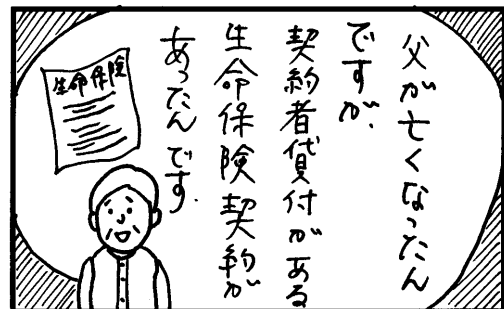 父が亡くなったん
ですが、
契約者貸付がある
生命保険契約が
あったんです。
生命保険